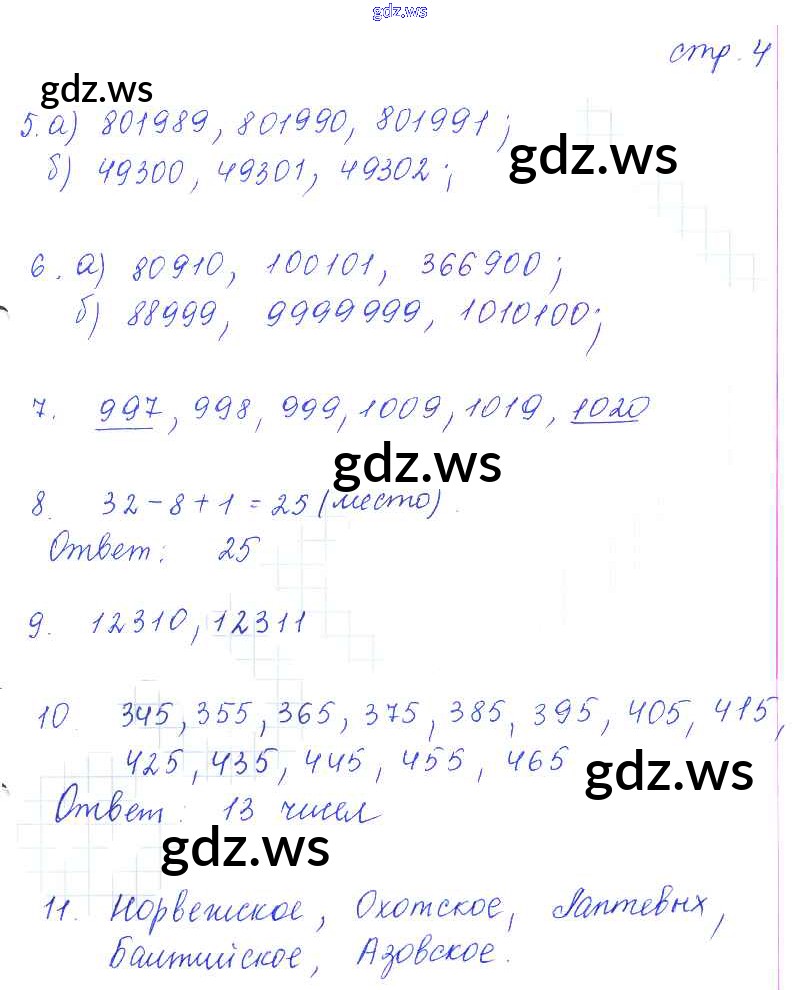 gdz.ws
стр. 4
gdz.ws
5. а) 801989, 801990, 801991;
gdz.ws
б) 49300, 49301, 49302;
6. а) 80910, 100101, 366900;
б) 88999, 9999999, 1010100;
7. 997, 998, 999, 1009, 1019, 1020
gdz.ws
8. 32-8+1=25 (место).
Ответ: 25
9. 12310, 12311
10. 345, 355, 365, 375, 385, 395, 405, 415,
425, 435, 445, 455, 465
gdz.ws
Ответ: 13 чисел
gdz.ws
11. Норвежское, Охотское, Лаптевых,
Балтийское, Азовское.